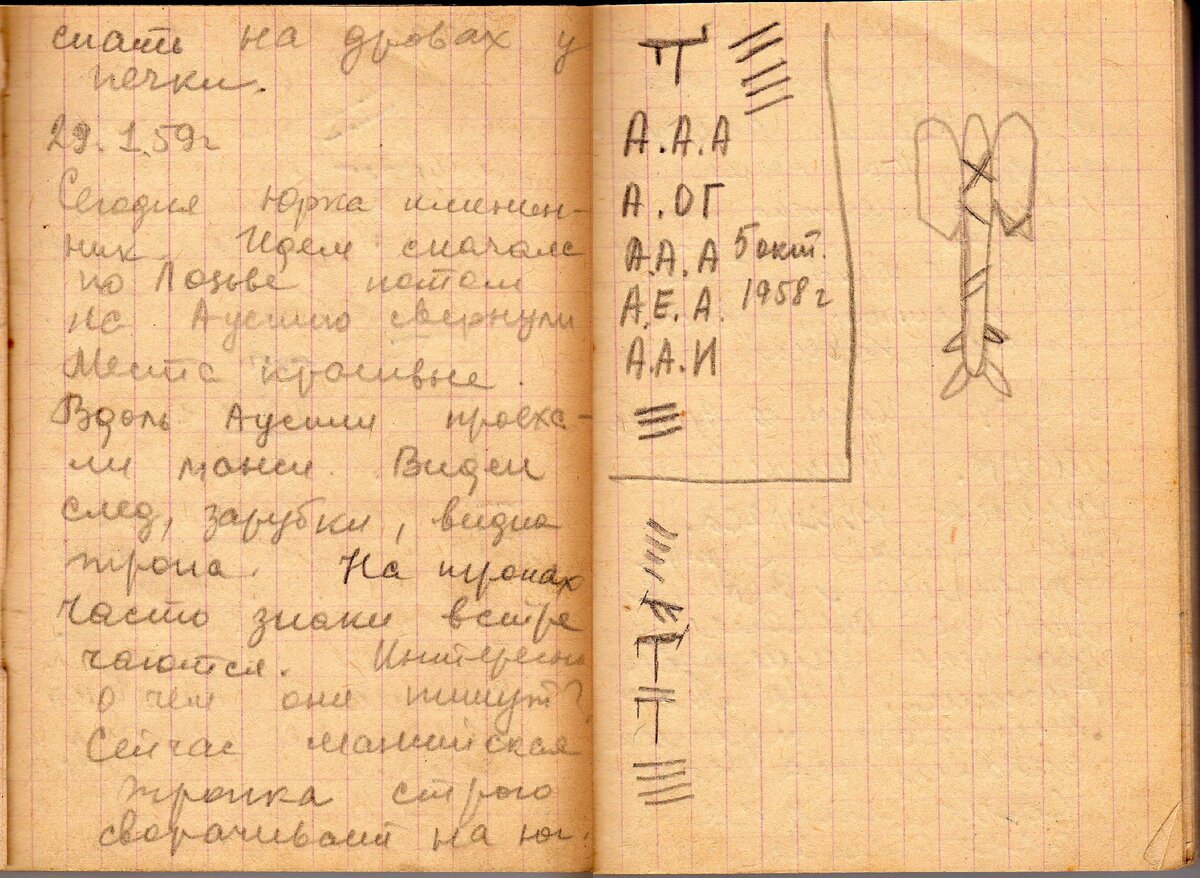 спать на дровах у
печки.
29.1.59г
Сегодня Юрка именин-
ник. Идем сначала
по Лозьве потом
на Ауспию свернули
Места красивые.
Вдоль Ауспии проеха-
ли манси. Виден
след, зарубки, видна
тропа. На тропах
часто знаки встре
чаются. Интересно
о чем они пишут?
Сейчас мансийская
тропка строго
сворачивает на юг.
А.А.А
А.ОГ
А.А.А 5 окт.
А.Е.А. 1958 г
А.А.И